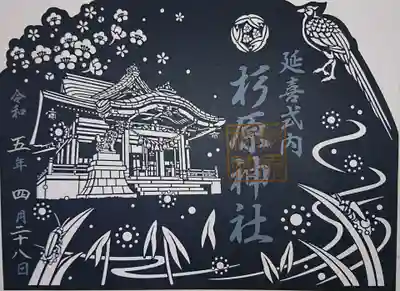 延喜式内
杉原神社
令和五年四月二十八日